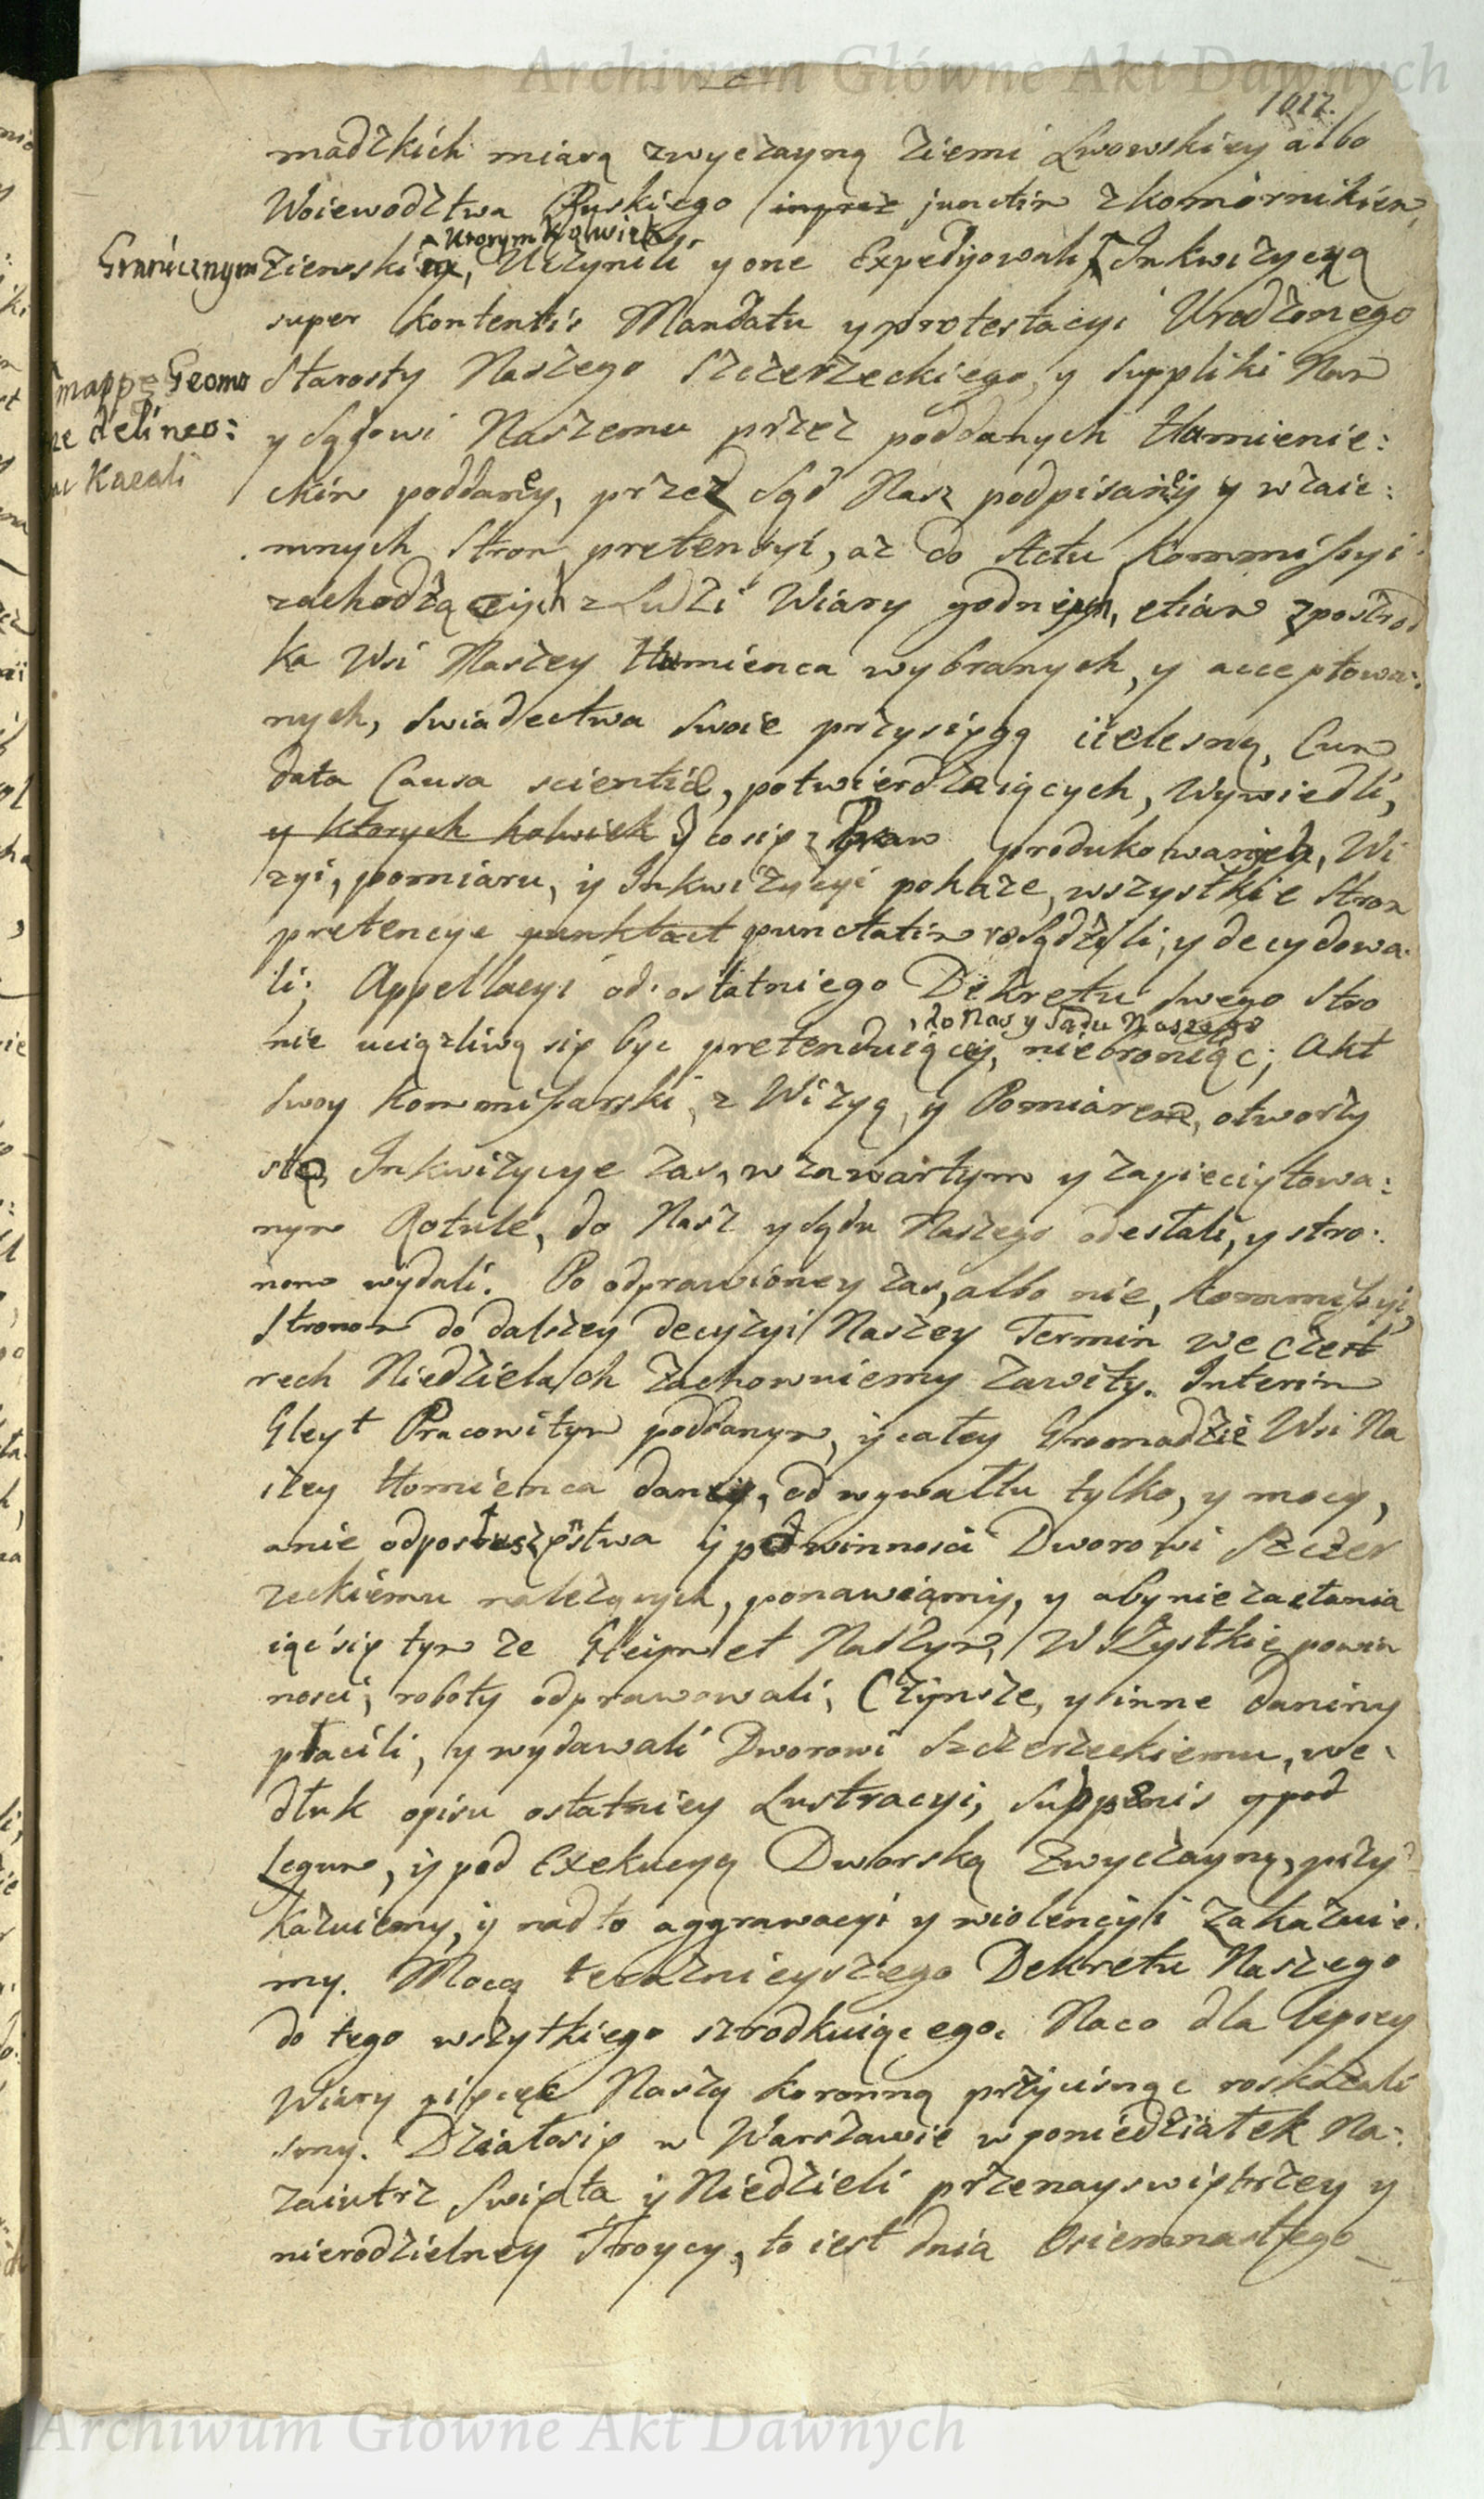 Archiwum Główne Akt Dawnych
1017.
madzkich miarą zwyczayną Ziemi Lwowskiey albo
Woiewodztwa Ruskiego junctim z komornikiem
którymkolwiek
Granicznym Ziemskim, Uczynili y one Expedyowali Inkwizycyą
super Kontentis Mandatu y protestacyi Urodzonego
mappę Geome Starosty Naszego Szczerzeckiego, y Suppliki Nam
delineo: y Sądowi Naszemu przez poddanych Humienie:
Kazali ckim poddaney, przed Sąd Nasz podpisaney y wzaie:
mnych Stron pretensyi, az do Actu Kommissyi
zachodzących z Ludzi Wiary godnych, etiam zposrod
ka Wsi Naszey Humienca wybranych, y acceptowa:
nych, swiadectwa swoie przysięgą cielesną, Cum
data Causa scientiæ, potwierdzaiących, Wywiedli,
y ktorych kolwiek y co się z Praw produkowanych, Wi
zyi, pomiaru, y Inkwizycyi pokaze, wszystkie Stron
pretensye punktat punctatim rosądzili, y decydowa:
li; Appellacyi od ostatniego Dekretu swego Stro
do Nas y Sądu Naszego
nie uciązliwą się byc pretenduiącey, niebroniąc; Akt
swoy Kommissarski, z Wizyą, y Pomiarem, otworzy
sto, Inkwizycye zas, w zawartym y zapieciętowa:
nym Rotule, do Nasz y Sądu Naszego odesłali, y stro:
nom wydali. Po odprawioney zas, albo nie, Kommissyi,
Stronom do dalszey decyzyi Naszey Termin we czte
rech Niedzielach zachowuiemy zawity. Interim
Gleyt Pracowitym poddanym, y całey Gromadzie Wsi Na
szey Homienca dany, od gwałtu tylko, y mocy,
a nie od posłuszęństwa y powinnosci Dworowi Szczer
zeckiemu nalezących, ponawiamy, y aby nie zasłania
iąc się tym ze Gleytem Naszym, Wszystkie powin
nosci, roboty odprawowali, Czynsze, y inne daniny
płacili, y wydawali Dworowi Szczerzeckiemu, we:
dłuk opisu ostatniey Lustracyi, sub pœnis
Legum, y pod Exekucyą Dworską zwyczayną, przy
kazuiemy, y nad to aggrawacyi y wiolencyi zakazuie:
my. Mocą teraznieyszego Dekretu Naszego
do tego wszytkiego szrodkuiącego. Na co dla lepszey
Wiary pięcęc Naszą koronną przycisnąc roskazali
smy. Działo się w Warszawie w poniedziałek Na:
zaiutrz Swięta y Niedzieli przenayswiętszey y
nierodzielney Troycy, to iest dnia Osiemnastego
Archiwum Główne Akt Dawnych